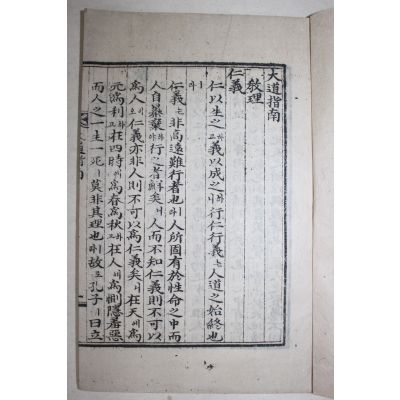 大道指南
敎理
仁義
仁以生之하고義以成之하니行仁行義는人道之始終也
라
仁義는非高遠難行者也라人所固有於性命之中而
人自暴棄하야行之者鮮矣라人而不知仁義則不可以
爲人이오仁義亦非人則不可以爲仁義矣라在天에爲
元 利하고在四時에爲春爲秋하고在人에爲惻隱羞惡
而人之一生一死이莫非其理也라故로孔子이曰立
大道指南